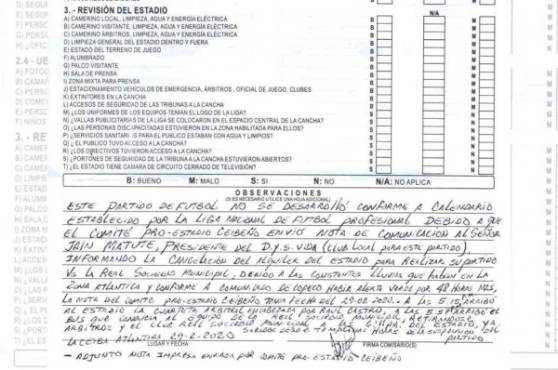 3.- REVISIÓN DEL ESTADIO
N/A
A) CAMERINO LOCAL, LIMPIEZA, AGUA Y ENERGÍA ELÉCTRICA
B) CAMERINO VISITANTE, LIMPIEZA, AGUA Y ENERGÍA ELÉCTRICA
C) CAMERINO ÁRBITROS, LIMPIEZA, AGUA Y ENERGÍA ELÉCTRICA
D) LIMPIEZA GENERAL DEL ESTADIO DENTRO Y FUERA
E) ESTADO DEL TERRENO DE JUEGO
F) ALUMBRADO
G) PALCO VISITANTE
H) SALA DE PRENSA
I) ZONA MIXTA PARA PRENSA
J) ESTACIONAMIENTO VEHÍCULOS DE EMERGENCIA, ÁRBITROS, OFICIAL DE JUEGO, CLUBES
K) EXTINTORES EN LA CANCHA
L) ACCESOS DE SEGURIDAD DE LAS TRIBUNAS A LA CANCHA
M) ¿LOS UNIFORMES DE LOS EQUIPOS TENÍAN EL LOGO DE LA LIGA?
N) ¿VALLAS PUBLICITARIAS DE LA LIGA SE COLOCARON EN EL ESPACIO CENTRAL DE LA CANCHA?
O) ¿LAS PERSONAS DISCAPACITADAS ESTUVIERON EN LA ZONA HABILITADA PARA ELLOS?
P) ¿SERVICIOS SANITARIOS PARA EL PUBLICO ESTABAN CON AGUA Y LIMPIOS?
Q) ¿EL PUBLICO TUVO ACCESO A LA CANCHA?
R) ¿LOS DIRECTIVOS TUVIERON ACCESO A LA CANCHA?
S) ¿PORTONES DE SEGURIDAD DE LA TRIBUNA A LA CANCHA ESTUVIERON ABIERTOS?
T) ¿EL ESTADIO TIENE CAMARA DE CIRCUITO CERRADO DE TELEVISIÓN?
B: BUENO M: MALO S: SI N: NO N/A: NO APLICA
OBSERVACIONES
(SI ES NECESARIO UTILICE UNA HOJA ADICIONAL)
ESTE PARTIDO DE FUTBOL NO SE DESARROLLÓ CONFORME A CALENDARIO
ESTABLECIDO POR LA LIGA NACIONAL DE FUTBOL PROFESIONAL DEBIDO A QUE
EL COMITÉ PRO-ESTADIO CEIBEÑO ENVIÓ NOTA DE COMUNICACIÓN AL SEÑOR
JAIN MATUTE, PRESIDENTE DEL D.y S. VIDA (CLUB LOCAL PARA ESTE PARTIDO)
INFORMANDO LA CANCELACIÓN DEL ALQUILER DEL ESTADIO PARA REALIZAR SU PARTIDO
VS LA REAL SOCIEDAD MUNICIPAL, DEBIDO A LAS CONSTANTES LLUVIAS QUE HABIAN EN LA
ZONA ATLANTICA Y CONFORME A COMUNICADO DE COPECO HABIA ALERTA VERDE POR 48 HORAS MAS,
LA NOTA DEL COMITÉ PRO-ESTADIO CEIBEÑO TENIA FECHA DEL 29-02-2020.- A LAS 5:15 ARRIBÓ
AL ESTADIO LA CUARTETA ARBITRAL ENCABEZADA POR RAUL CASTRO, A LAS 5:55 ARRIBÓ EL
BUS QUE CONDUCIA AL EQUIPO DE LA REAL SOCIEDAD MUNICIPAL, RETIRANDOSE
ARBITROS Y EL CLUB REAL SOCIEDAD MUNICIPAL DEL ESTADIO, YA
PARTIDO
LA CEIBA ATLANTIDA 29-2-2020
LUGAR Y FECHA FIRMA COMISARIO(S)
- ADJUNTO NOTA IMPRESA ENVIADA POR COMITÉ PRO-ESTADIO CEIBEÑO